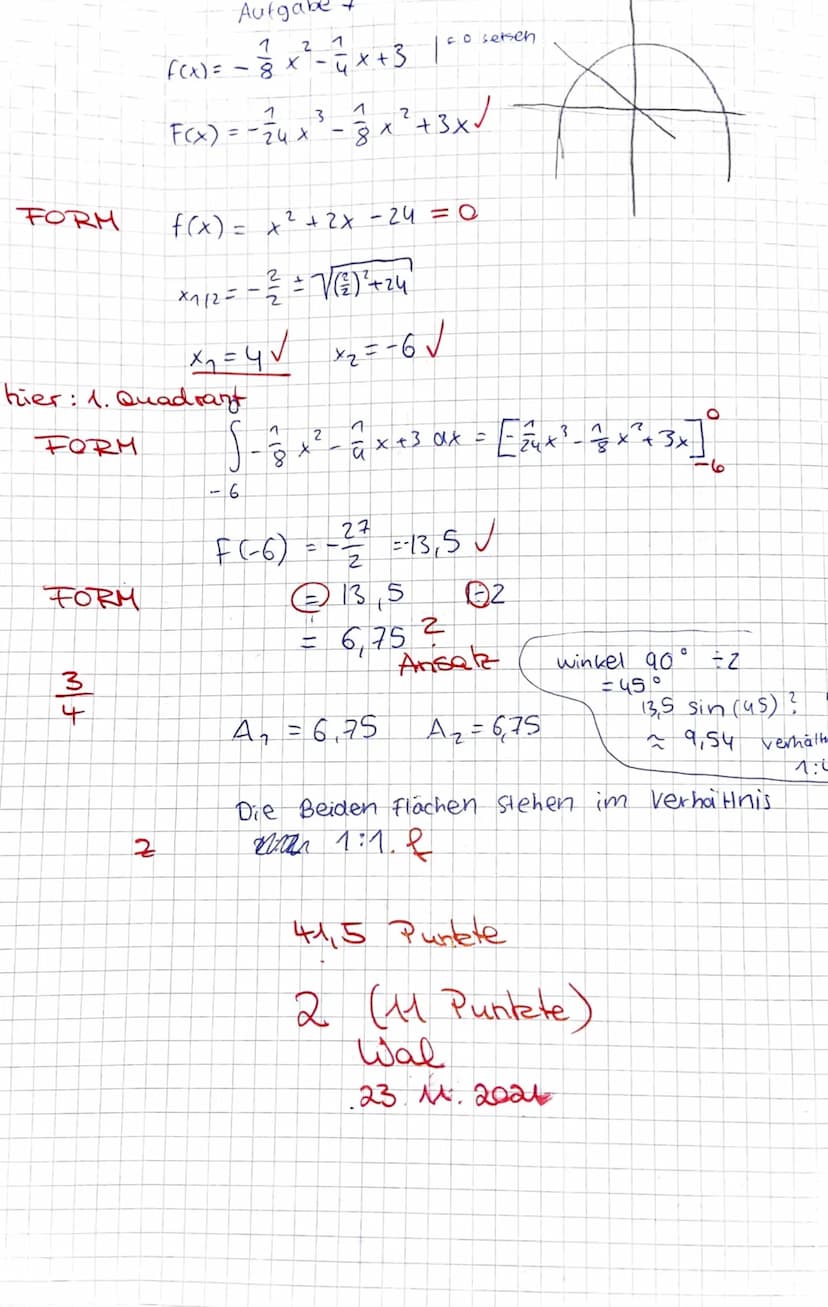 Aufgabe 7
f(x) = - 1/8 x² - 1/4 x + 3 | = 0 setzen
F(x) = - 1/24 x³ - 1/8 x² + 3x ✓
FORM f(x) = x² + 2x - 24 = 0
x1/2 = - 2/2 ± √((2/2)² + 24)
x1 = 4 ✓ x2 = -6 ✓
hier: 1. Quadrant
FORM ∫ - 1/8 x² - 1/4 x + 3 dx = [- 1/24 x³ - 1/8 x² + 3x] 0 -6
-6
F(-6) = - 27/2 = -13,5 ✓
FORM = 13,5 ÷2
= 6,75 ?
Ansatz
winkel 90° ÷2
= 45°
13,5 sin(45) ?
≈ 9,54 verhält
1:
3/4
A1 = 6,75 A2 = 6,75
Die Beiden Flächen stehen im Verhältnis
2 1:1. f
41,5 Punkte
2 (11 Punkte)
Wal
23.11.2021